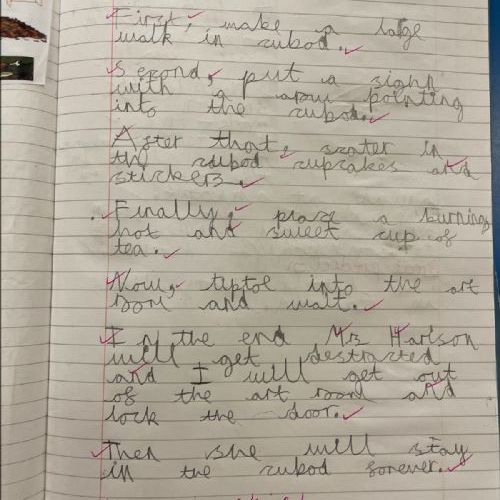 First, make a large
walk in cubod.
Second, put a sighn
with a arow pointing
into the cubod.
After that, scater in
the cubod cupcakes and
stickers.
Finally, place a burning
hot and sweet cup of
tea.
Now, tiptoe into the art
room and wait.
In the end Mrs Harlson
will get destracted
and I will get out
of the art room and
lock the door.
Then she will stay
in the cubod forever.